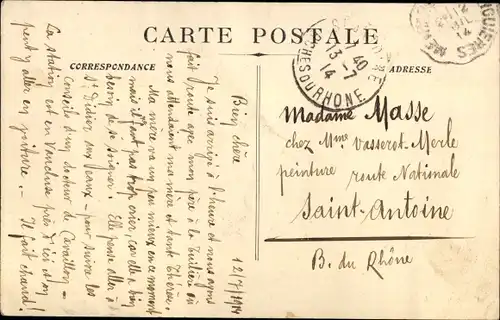 CARTE POSTALE
CORRESPONDANCE
ADRESSE
12/7/1914
Bien chère
Je suis arrivé à l'heure et nous avons
fait route avec mon père à la tuilière où
nous attendaient ma mère et tante Thérèse.
Ma mère va un peu mieux en ce moment
mais il faut pas trop crier car elle a bien
besoin de se soigner. Elle pense aller à
St Didier aux eaux - pour suivre les
Conseils d'un docteur de Cavaillon.
La station est en Vaucluse près d'ici et on
peut y aller en voiture. - Il fait chaud!
Madame Masse
chez Mme Vasserot-Merle
peinture route Nationale
Saint-Antoine
B. du Rhône
7 40
13-7
14
HES DU RHONE